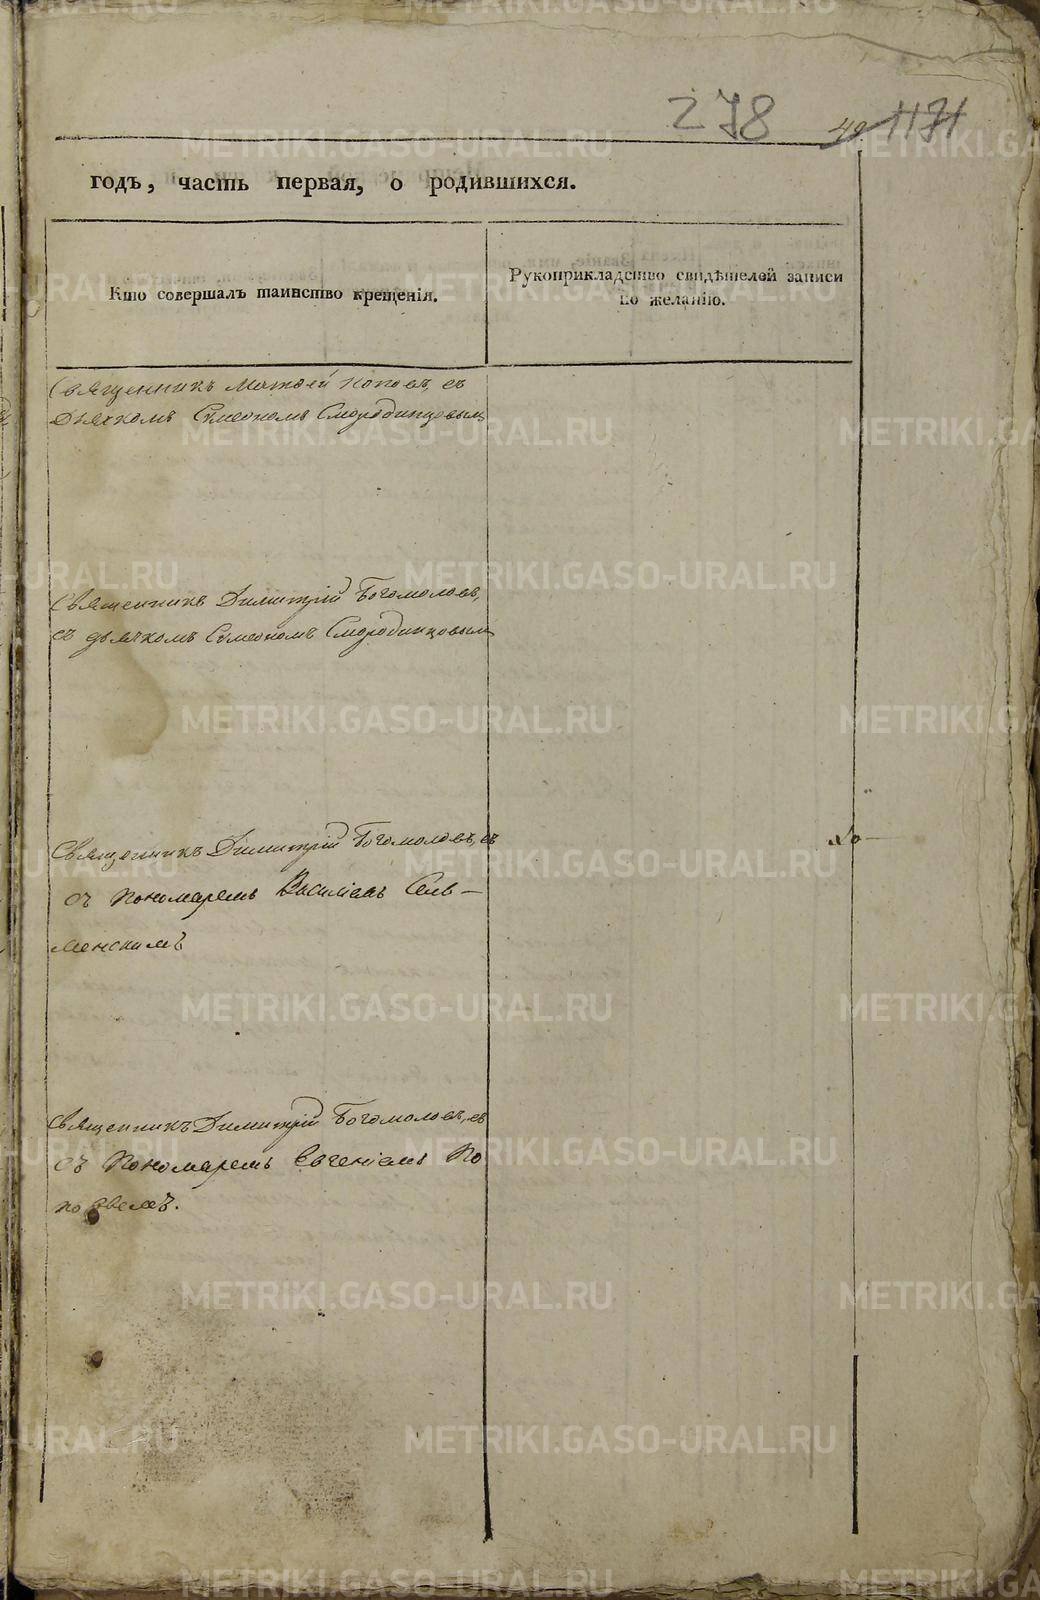 278
49 1171
годъ, часть первая, о родившихся.
Кто совершалъ таинство крещенія.
Рукоприкладство свидѣтелей записи
по желанію.
Священникъ Матѳей Поповъ, съ
Дьячкомъ Сѵмеономъ Смородинцовымъ
Священникъ Димитрій Богомоловъ,
съ дьячкомъ Сѵмеономъ Смородинцовымъ
Священникъ Димитрій Богомоловъ, съ
съ Пономаремъ Василіемъ Сель-
менскимъ
Священникъ Димитрій Богомоловъ, съ
съ Пономаремъ Евгеніемъ По
повымъ.
METRIKI.GASO-URAL.RU